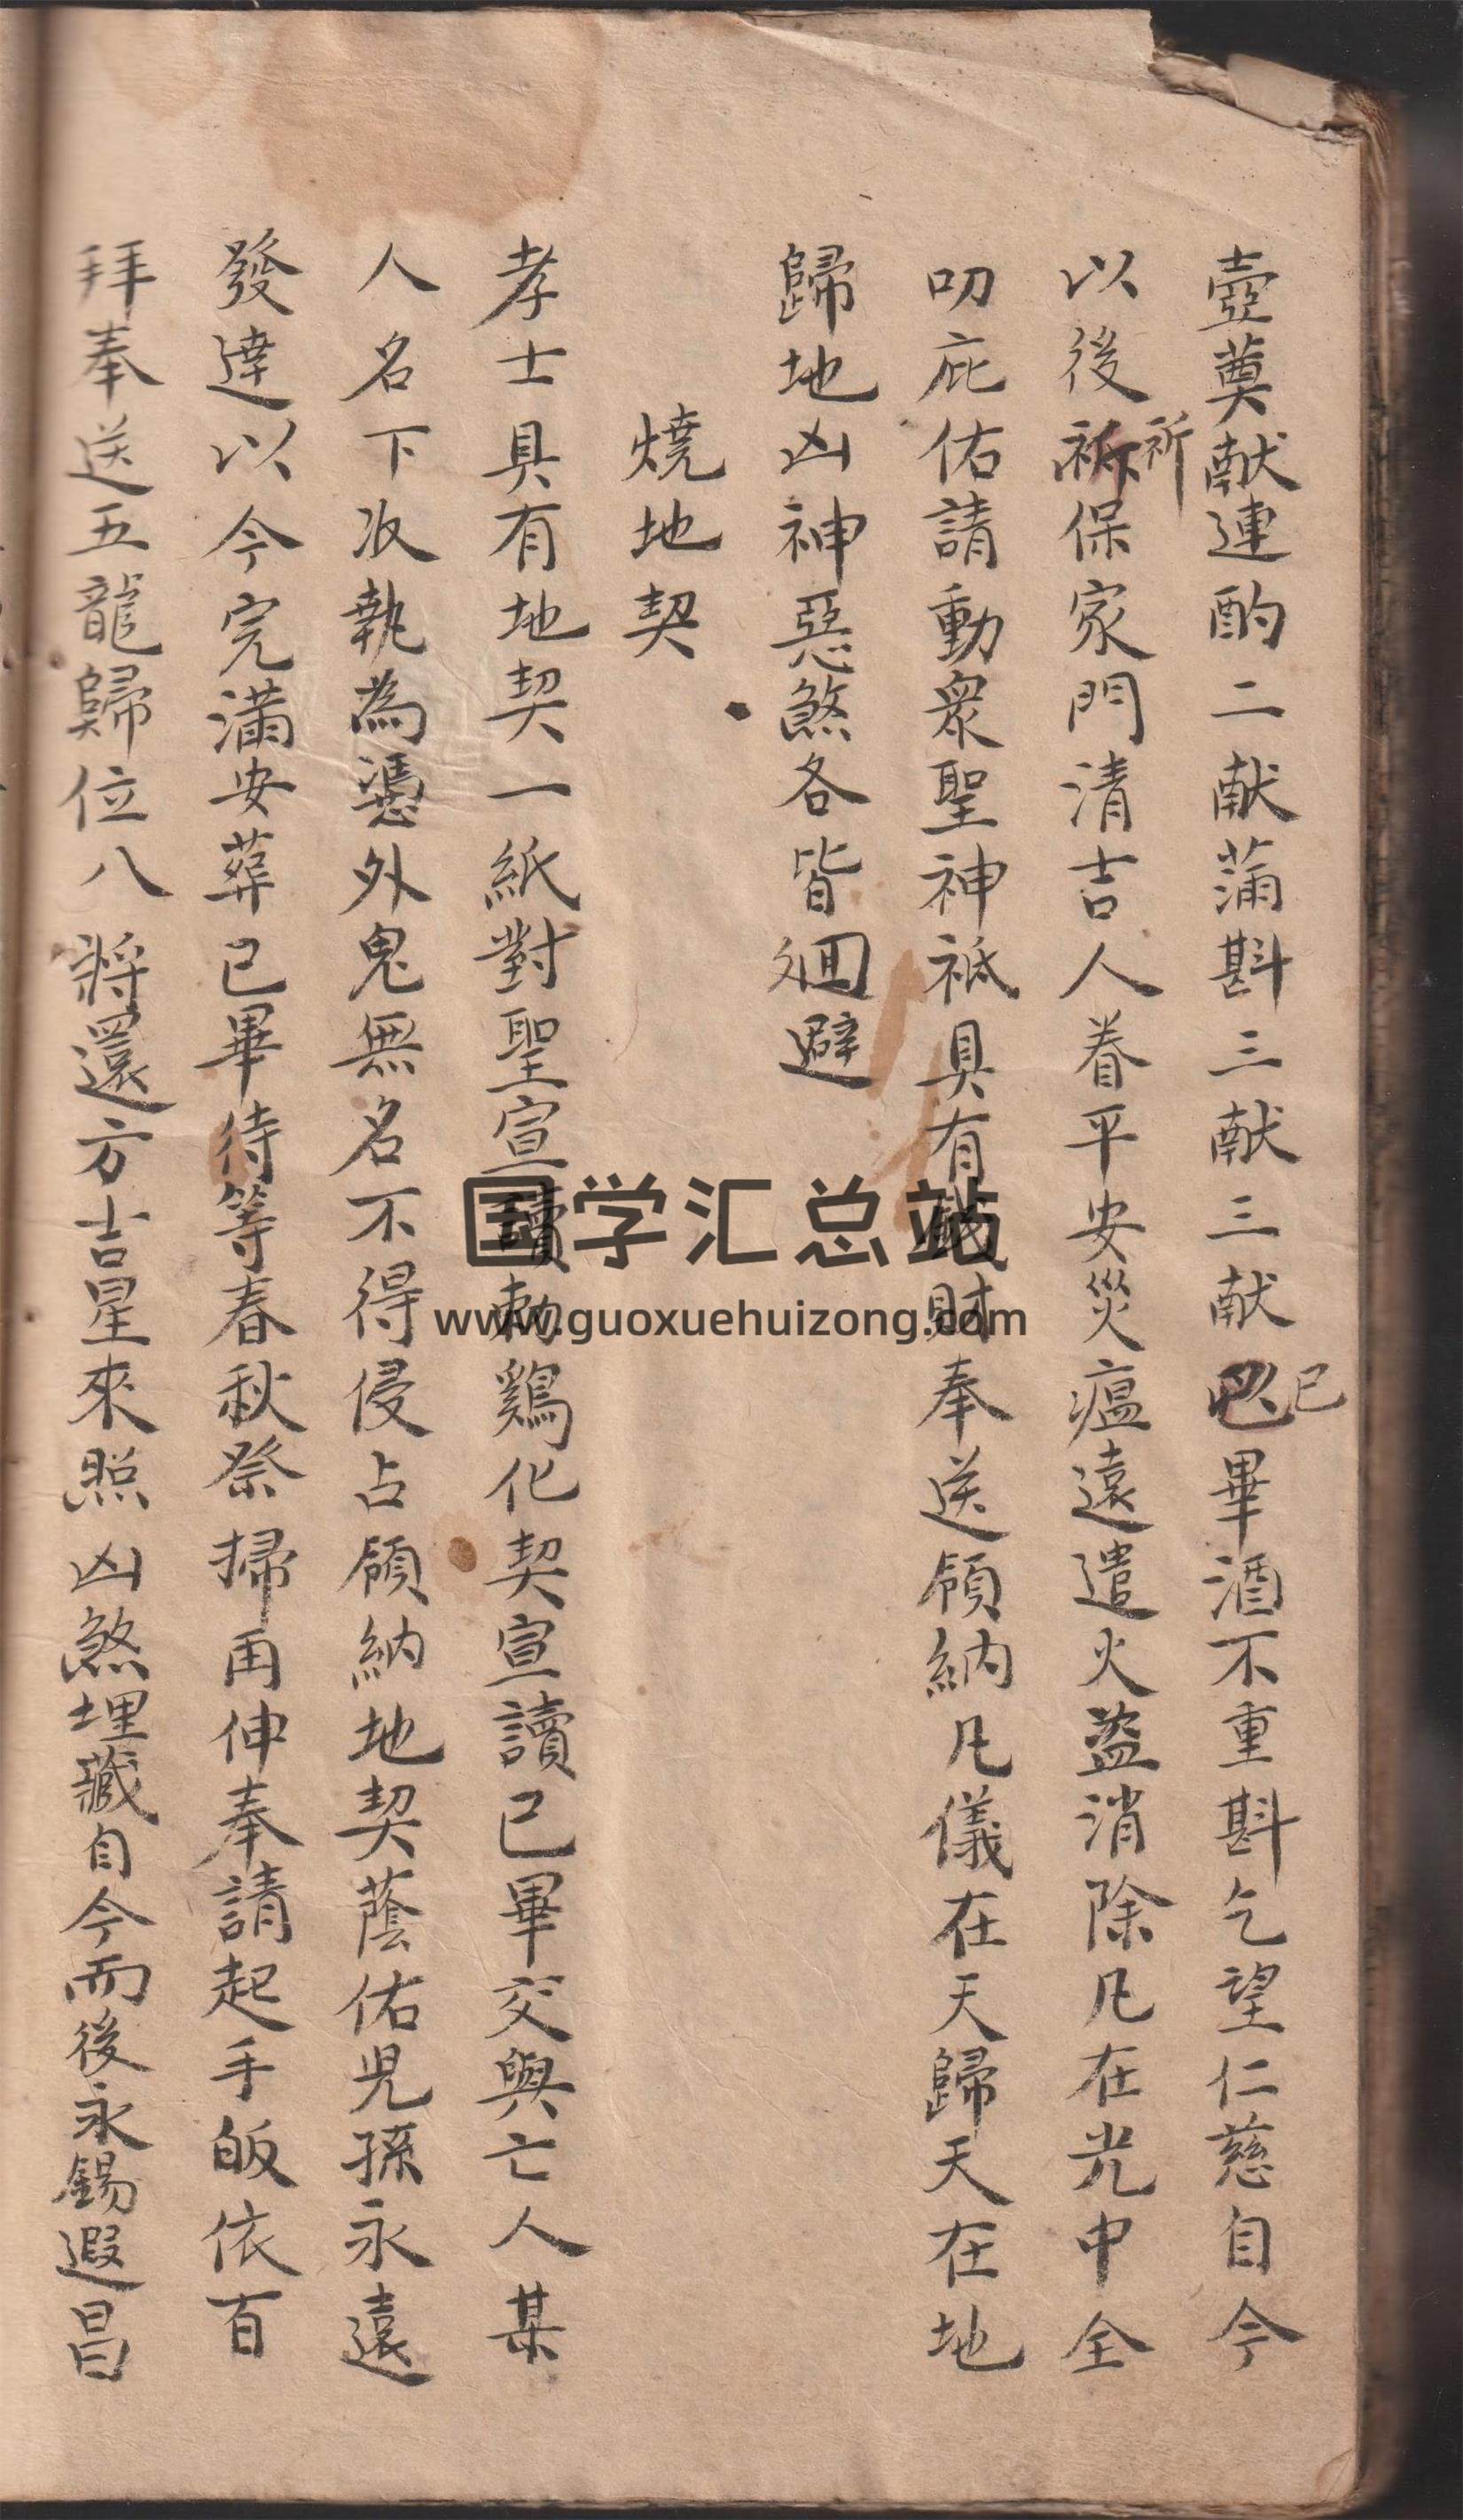 壺奠献連酌二献蒲斟三献三献已畢酒不重斟乞望仁慈自今
以後祈保家門清吉人眷平安災瘟遠遣火盗消除凡在光中全
叨庇佑請動衆聖神祗具有錢財奉送領納凡儀在天歸天在地
歸地凶神惡煞各皆廻避
燒地契
孝士具有地契一紙對聖宣讀勅鷄化契宣讀已畢交與亡人某
人名下収執為憑外鬼無名不得侵占領納地契蔭佑児孫永遠
發達以今完滿安葬已畢待等春秋祭掃再伸奉請起手皈依百
拜奉送五龍歸位八將還方吉星來照凶煞埋藏自今而後永錫遐昌
国学汇总站
www.guoxuehuizong.com